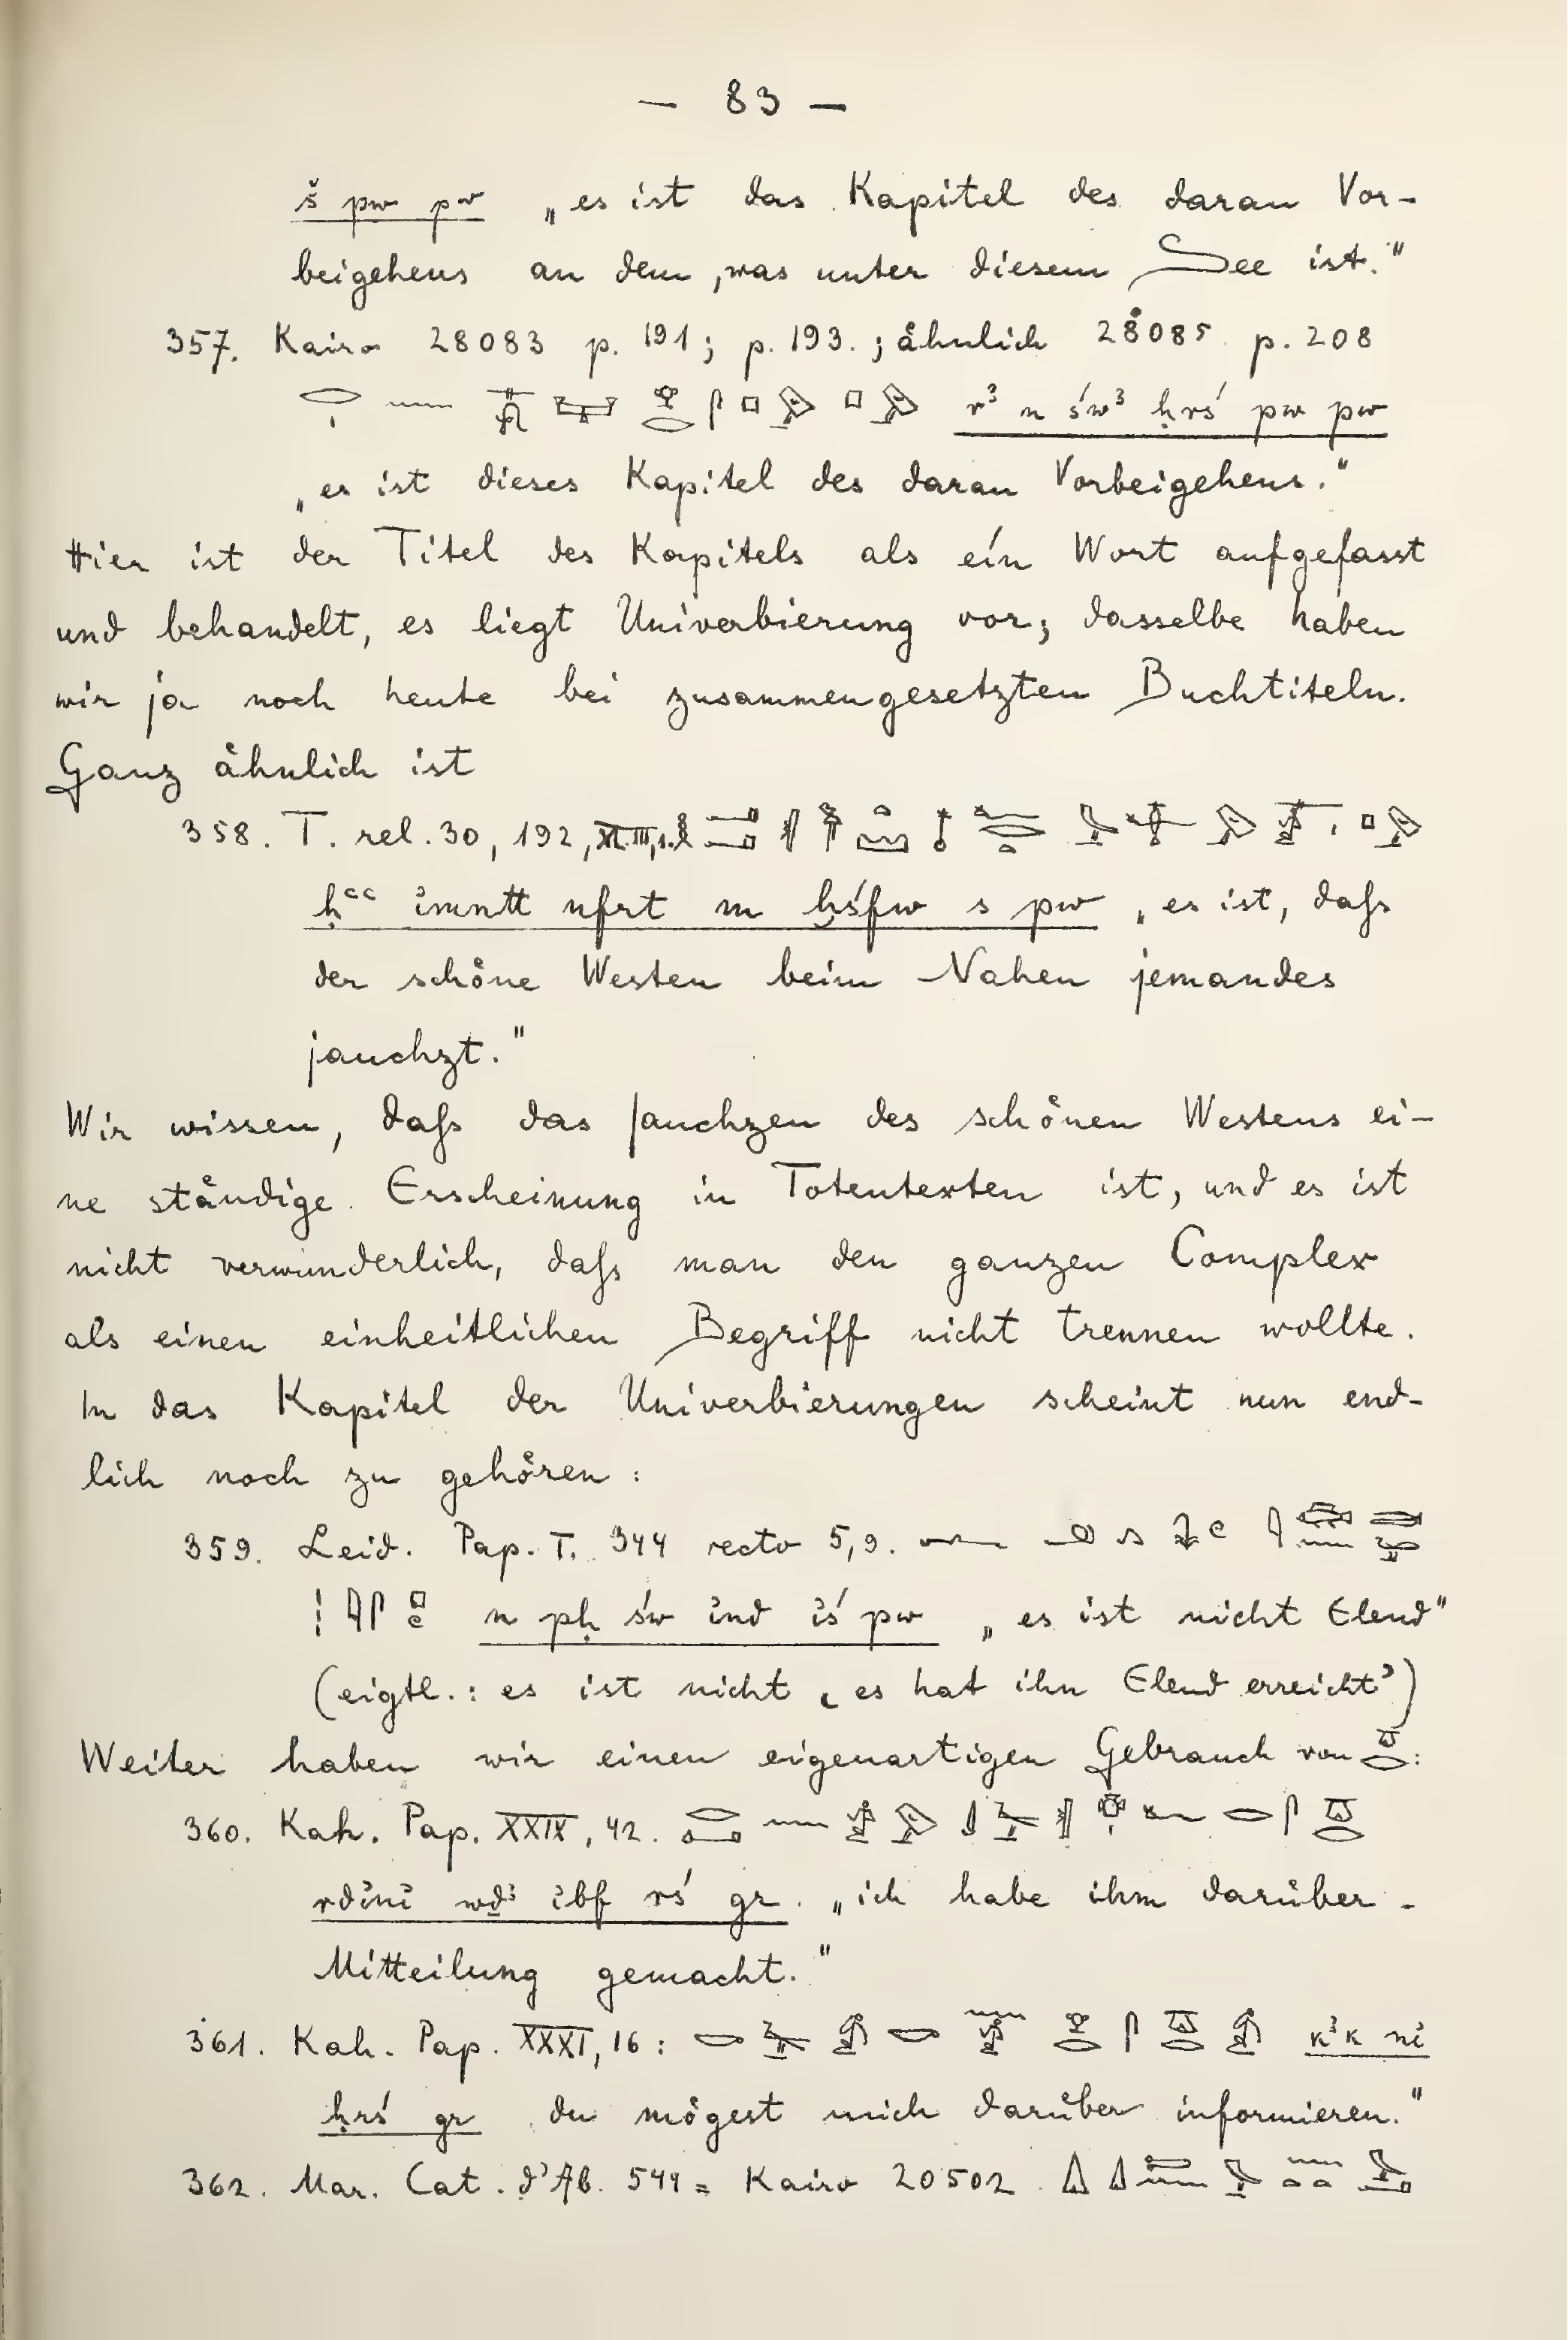 — 83 —
š pw pw „es ist das Kapitel des daran Vor-
beigehens an dem, was unter diesem See ist."
357. Kairo 28083 p. 191; p. 193.; ähnlich 28085 p. 208
rꜣ n św ꜣ ḥrś pw pw
„es ist dieses Kapitel des daran Vorbeigehens."
Hier ist der Titel des Kapitels als eín Wort aufgefasst
und behandelt, es liegt Univerbierung vor; dasselbe haben
wir ja noch heute bei zusammengesetzten Buchtiteln.
Ganz ähnlich ist
358. T. rel. 30, 192,
ḥꜥꜥ ἰmntt nfrt m ḫśfw s pw „es ist, daſs
der schöne Westen beim Nahen jemandes
jauchzt."
Wir wissen, daſs das Jauchzen des schönen Westens ei-
ne ständige Erscheinung in Totentexten ist, und es ist
nicht verwunderlich, daſs man den ganzen Complex
als einen einheitlichen Begriff nicht trennen wollte.
In das Kapitel der Univerbierungen scheint nun end-
lich noch zu gehören:
359. Leid. Pap. T. 344 recto 5,9.
n pḥ św ἰnd ἰś pw „es ist nicht Elend"
(eigtl.: es ist nicht ‚es hat ihn Elend erreicht')
Weiter haben wir einen eigenartigen Gebrauch von :
360. Kah. Pap. XXIX, 42.
rdἰnἰ wḏꜣ ἰbf rś gr. „ich habe ihm darüber -
Mitteilung gemacht."
361. Kah. Pap. XXXI, 16: kꜣk nἰ
ḥrś gr du mögest mich darüber informieren."
362. Mar. Cat. d'Ab. 544 = Kairo 20502